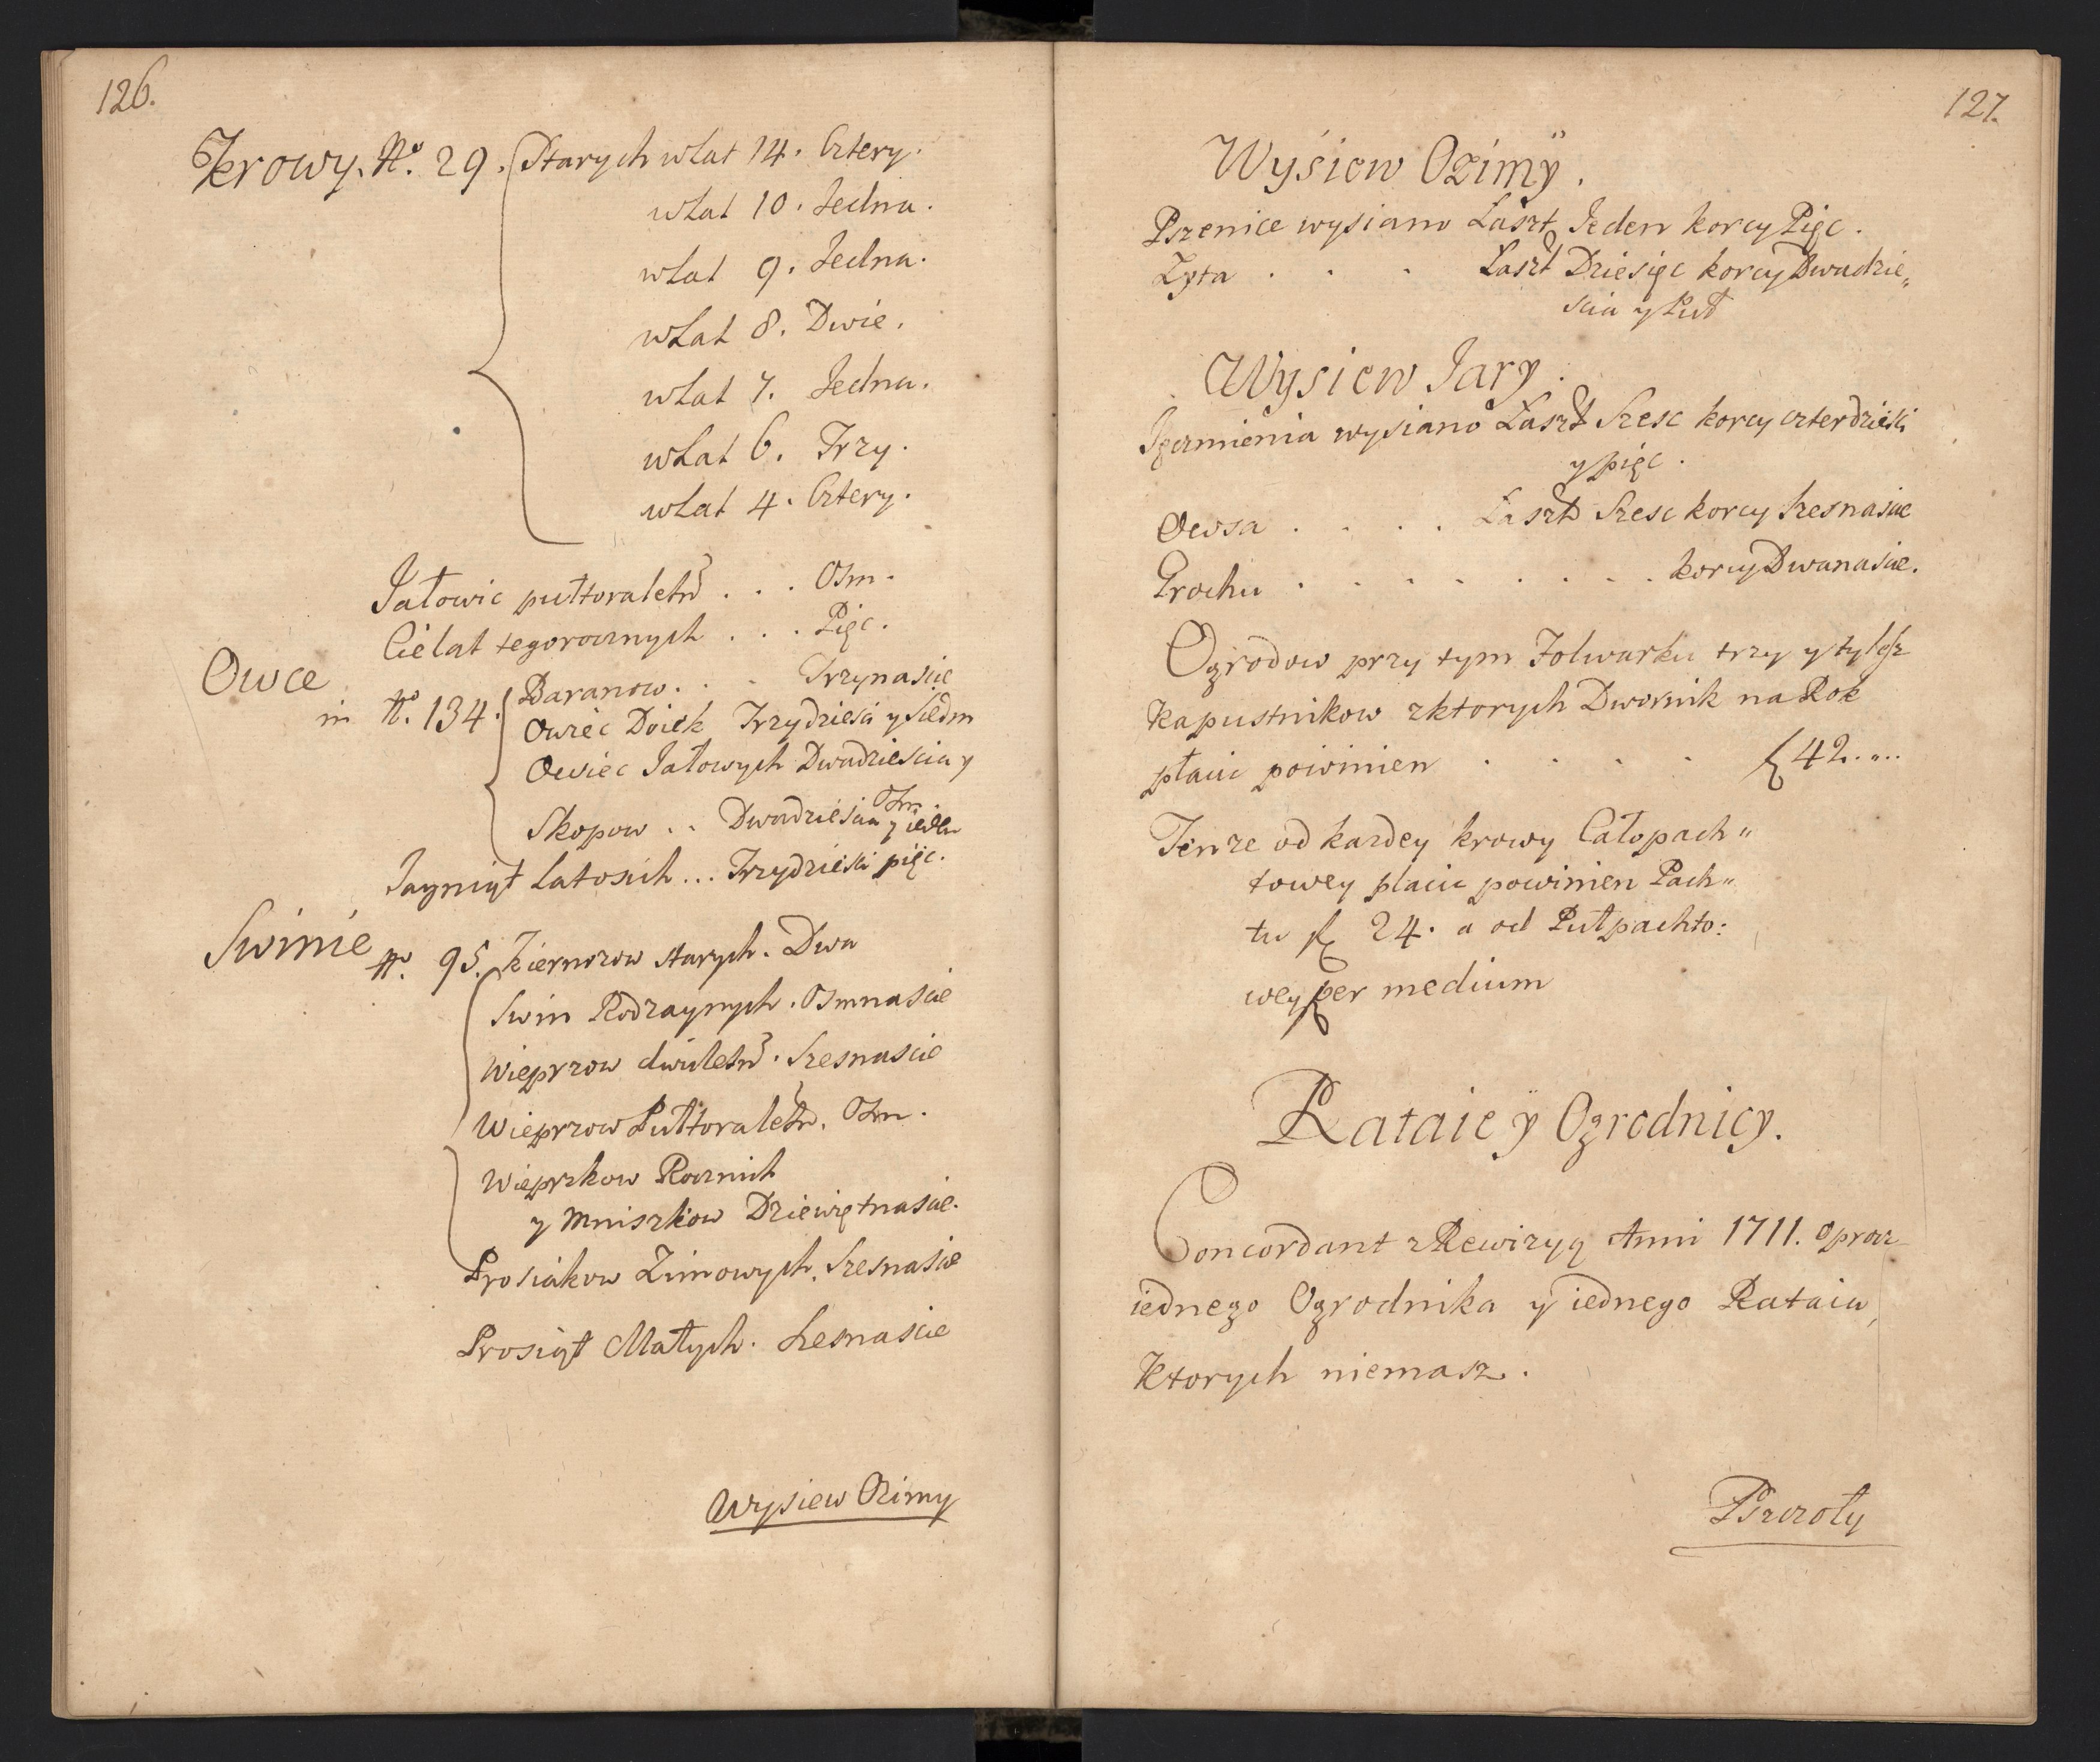 126.
Krowy. No. 29. Starych wlat 14. Cztery.
wlat 10. Jedna.
wlat 9. Jedna.
wlat 8. Dwie.
wlat 7. Jedna.
wlat 6. Trzy.
wlat 4. Cztery.
Jałowic pułtoraletn . . . Osm.
Cielat tegorocznych . . . Pięc.
Owce
in No. 134. Baranow . . Trzynascie
Owiec Doiek Trzydziesci y Siedm
Owiec Jałowych Dwadziescia y
Osm
Skopow . . Dwadziescia y ieden
Jagniąt Latosich ... Trzydziesci pięc.
Swinie No. 95. Kiernozow starych. Dwa
Swin Rodzaynych. Osmnascie
Wieprzow dwuletn. Szesnascie
Wieprzow Pułtoraletn. Osm.
Wieprzkow Rocznich
y Mniszkow Dziewiętnascie.
Prosiakow Zimowych. Szesnascie
Prosiąt Małych. Szesnascie
Wysiew Ozimy
127.
Wysiew Ozimÿ.
Pszenice wysiano Łaszt Jeden korcy Pięc.
Zyta . . . Łaszt Dziesięc korcy Dwadzie„
scia y Puł
Wysiew Jary.
Jęczmienia wysiano Łaszt Szesc korcy czterdziesci
y pięc.
Owsa . . . . Łaszt Szesc korcy Szesnascie
Grochu . . . . . . . . korcy Dwanascie.
Ogrodow przy tym Folwarku trzy y tylesz
Kapustnikow zktorych Dwornik na Rok
płacic powinien . . . . f 42. „.
Tenze od kazdey krowy Całopach„
towey placic powinien Pach„
tu f 24. a od Pułpachto:
wey per medium
Rataie ÿ Ogrodnicy.
Concordant z Rewizyą Anni 1711. oprocz
iednego Ogrodnika y iednego Rataia,
Ktorych niemasz.
Pszczoły